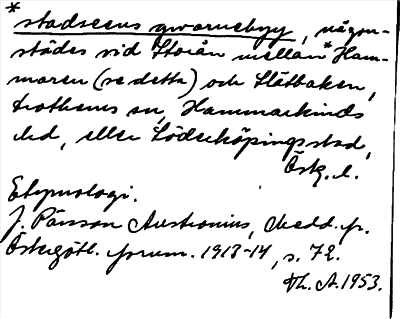 *stadsens qwarnebyg, någon-
städes vid Storån mellan *Ham-
maren (se detta) och Slätbaken,
trothems sn, Hammarkinds
hd, eller Söderköpings stad,
Östg. l.
Etymologi.
J. Pärsson Austronius, Medd. fr.
Östergötl. fornm. 1913-14, s. 72.
Th. A. 1953.